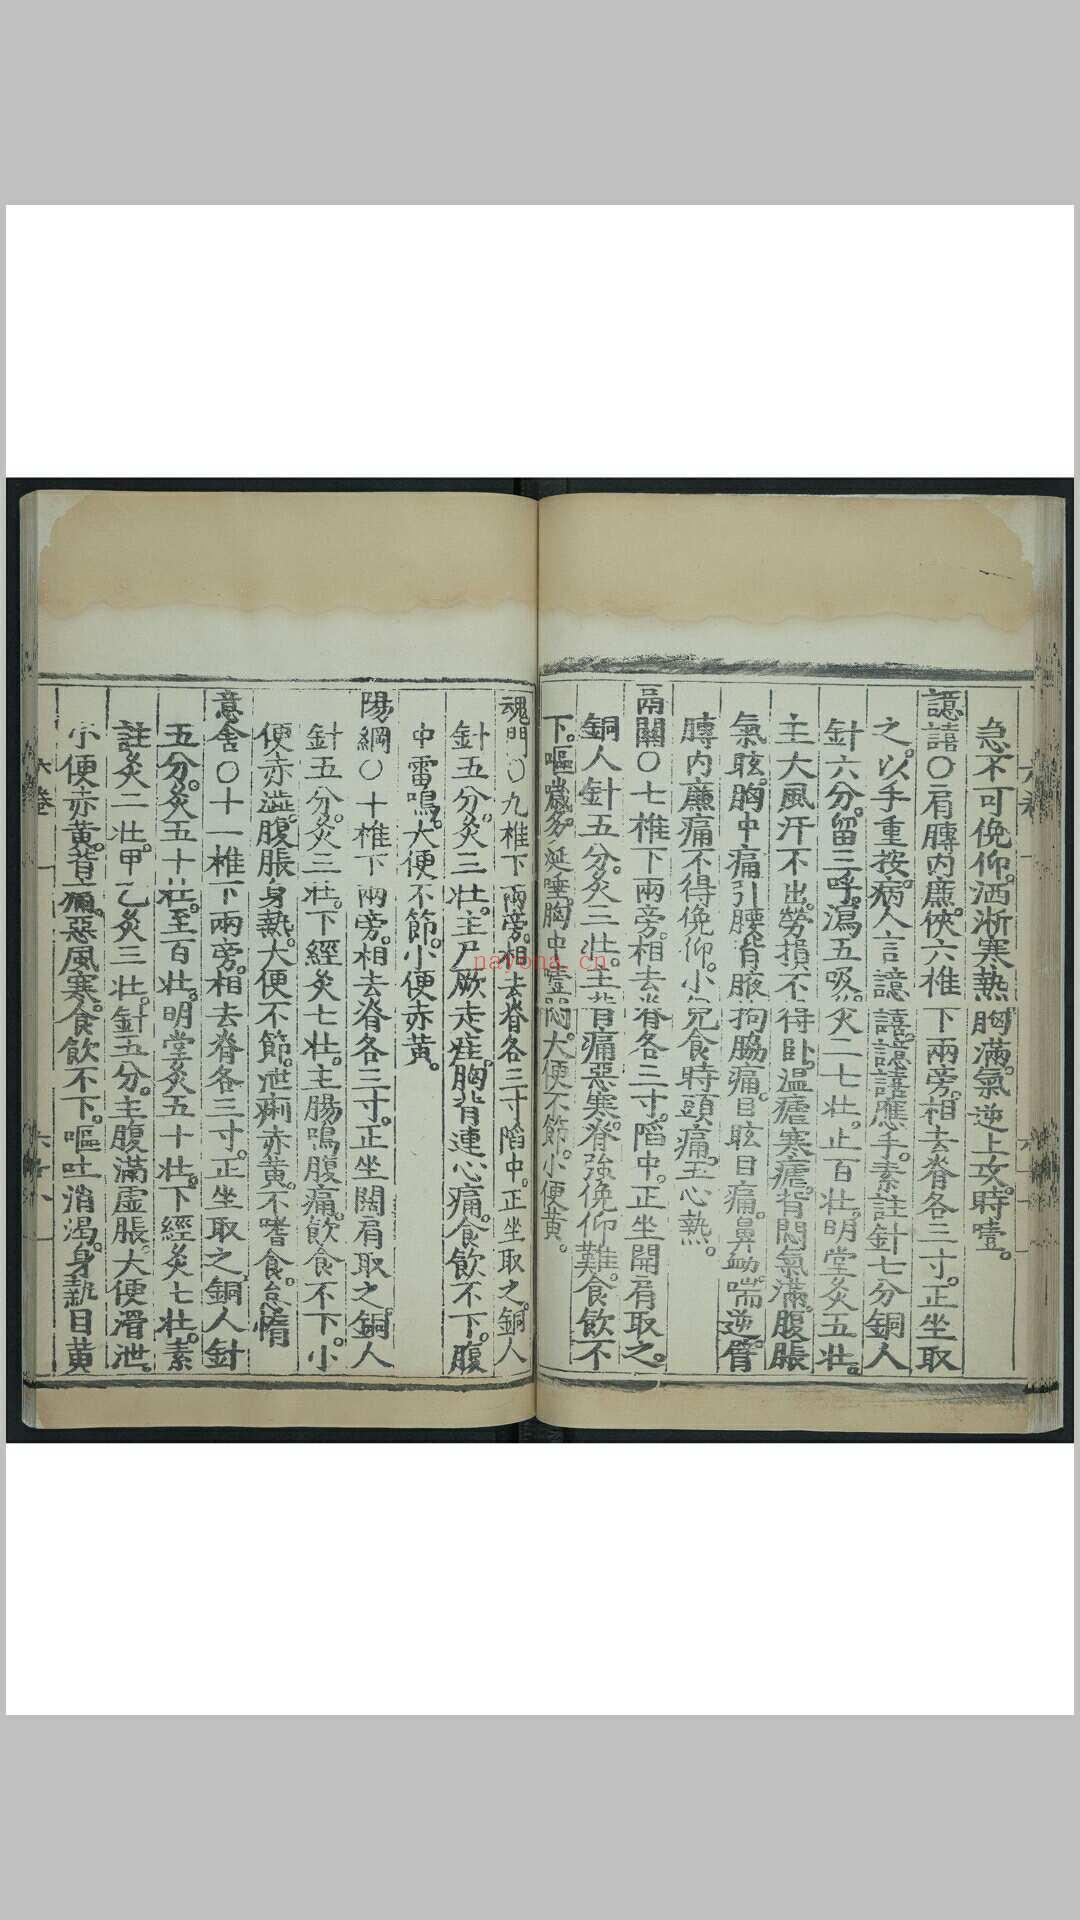 急不可俛仰。洒淅寒熱。胸滿。氣逆上攻。時噎。
譩譆○肩膊内廉。俠六椎下兩旁。相去脊各三寸。正坐取
之。以手重按。病人言譩譆。譩譆應手。素註針七分。銅人
針六分。留三呼。瀉五吸。灸二七壯。止百壯。明堂灸五壯。
主大風汗不出。勞損不得卧。温瘧寒瘧。背悶氣滿。腹脹
氣眩。胸中痛引腰背。腋拘脇痛。目眩目痛。鼻衂喘逆。臂
膊内廉痛。不得俛仰。小兒食時頭痛。五心熱。
膈關○七椎下兩旁。相去脊各三寸。陷中。正坐開肩取之。
銅人針五分。灸三壯。主背痛惡寒。脊強俛仰難。食飲不
下。嘔噦多涎唾。胸中噎悶。大便不節。小便黄。
魂門○九椎下兩旁。相去脊各三寸陷中。正坐取之。銅人
針五分。灸三壯。主尸厥走疰。胸背連心痛。食飲不下。腹
中雷鳴。大便不節。小便赤黄。
陽綱○十椎下兩旁。相去脊各三寸。正坐闊肩取之。銅人
針五分。灸三壯。下經灸七壯。主腸鳴腹痛。飲食不下。小
便赤澁。腹脹身熱。大便不節。泄痢赤黄。不嗜食。怠惰
意舍○十一椎下兩旁。相去脊各三寸。正坐取之。銅人針
五分。灸五十壯。至百壯。明堂灸五十壯。下經灸七壯。素
註灸二壯。甲乙灸三壯。針五分。主腹滿虛脹。大便滑泄。
小便赤黄。背痛。惡風寒。食飲不下。嘔吐消渴。身熱目黄
六卷
nayona.cn